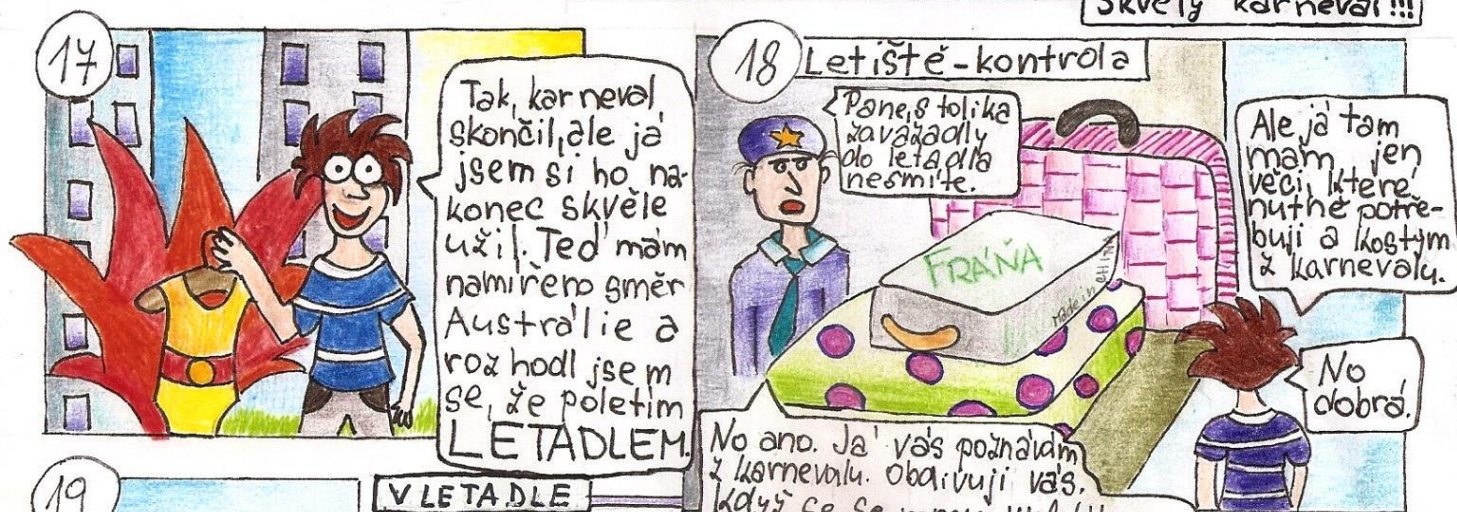 Skvělý karneval!!!
17
Tak, karneval
skončil, ale já
jsem si ho na-
konec skvěle
užil. Teď mám
namířeno směr
Austrálie a
rozhodl jsem
se, že poletím
LETADLEM.
18
Letiště-kontrola
Pane, s tolika
zavazadly
do letadla
nesmíte.
FRÁŇA
Made in
Ale já tam
mám jen
věci, které
nutně potře-
buji a kostým
z karnevalu.
No
dobrá.
No ano. Já vás poznávám
z karnevalu. Obdivuji vás.
Když se se mnou
19
V LETADLE